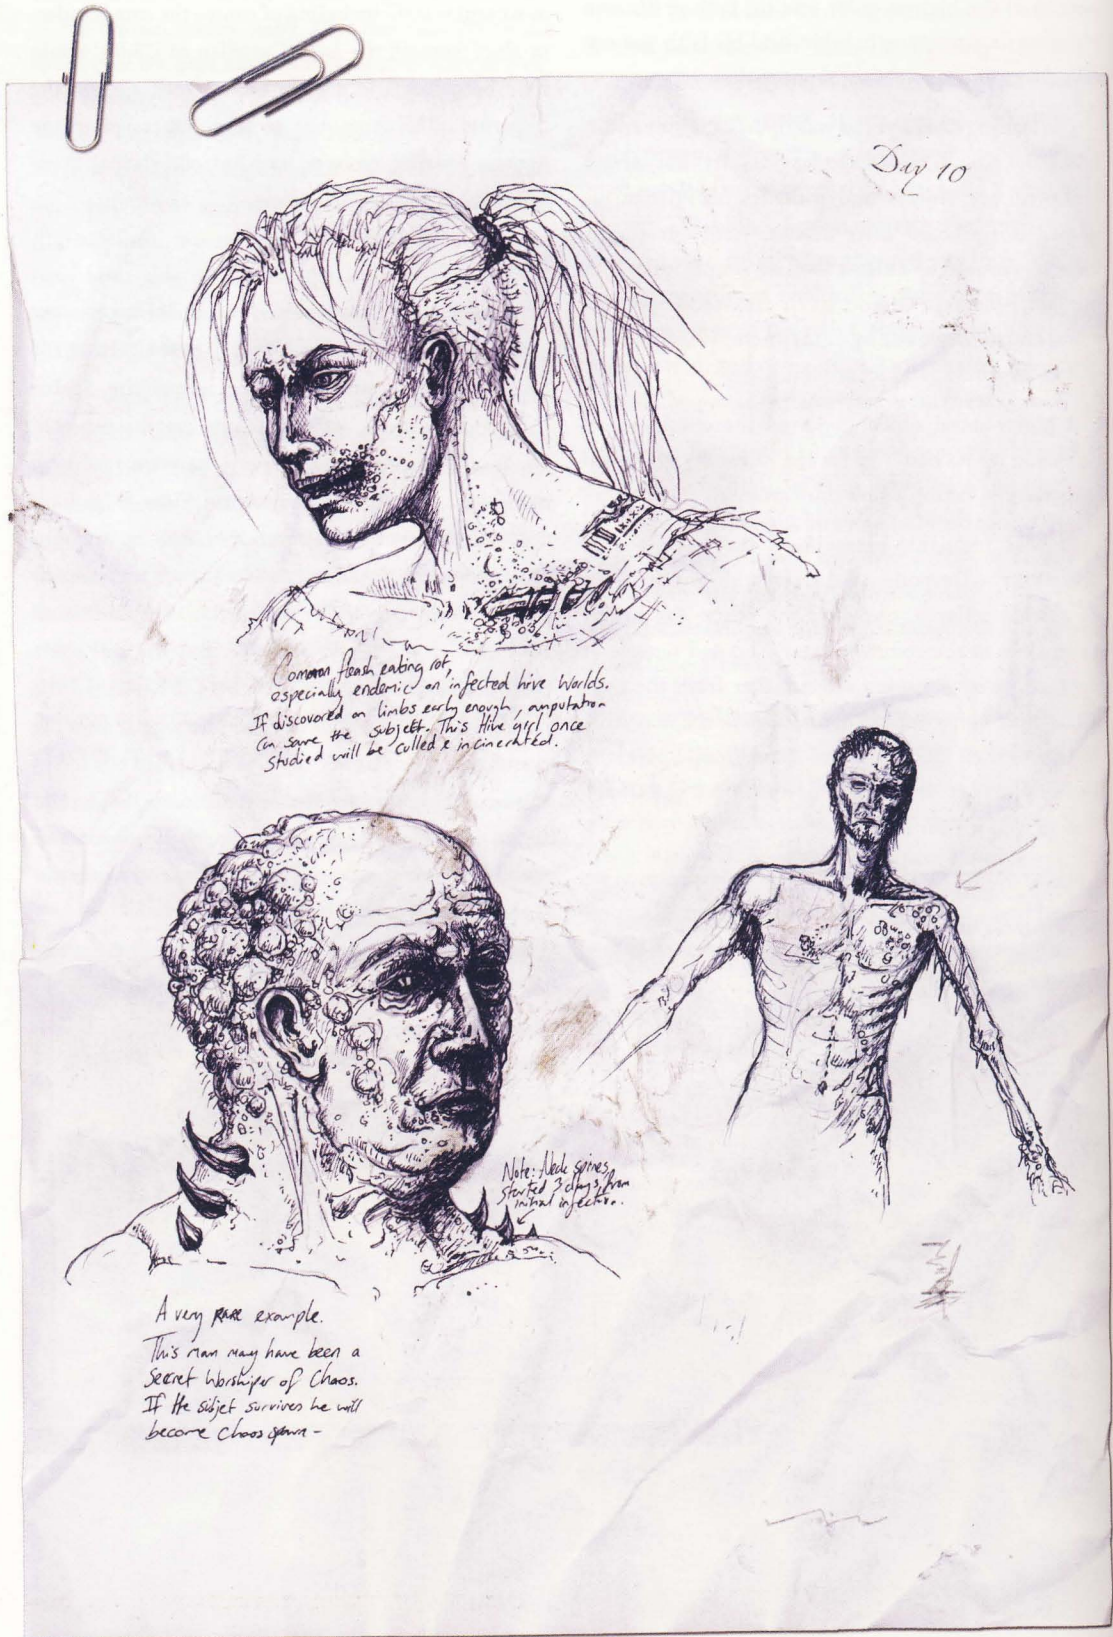 Day 10
Common fleash eating rot,
especially endemic on infected hive worlds.
If discovored on limbs early enough, amputation
can save the subject. This Hive girl once
studied will be culled & incinerated.
Note: Neck spines
started 3 days from
initial infection.
A very RARE example.
This man may have been a
Secret Worshiper of Chaos.
If the subjet survives he will
become Chaos spawn -